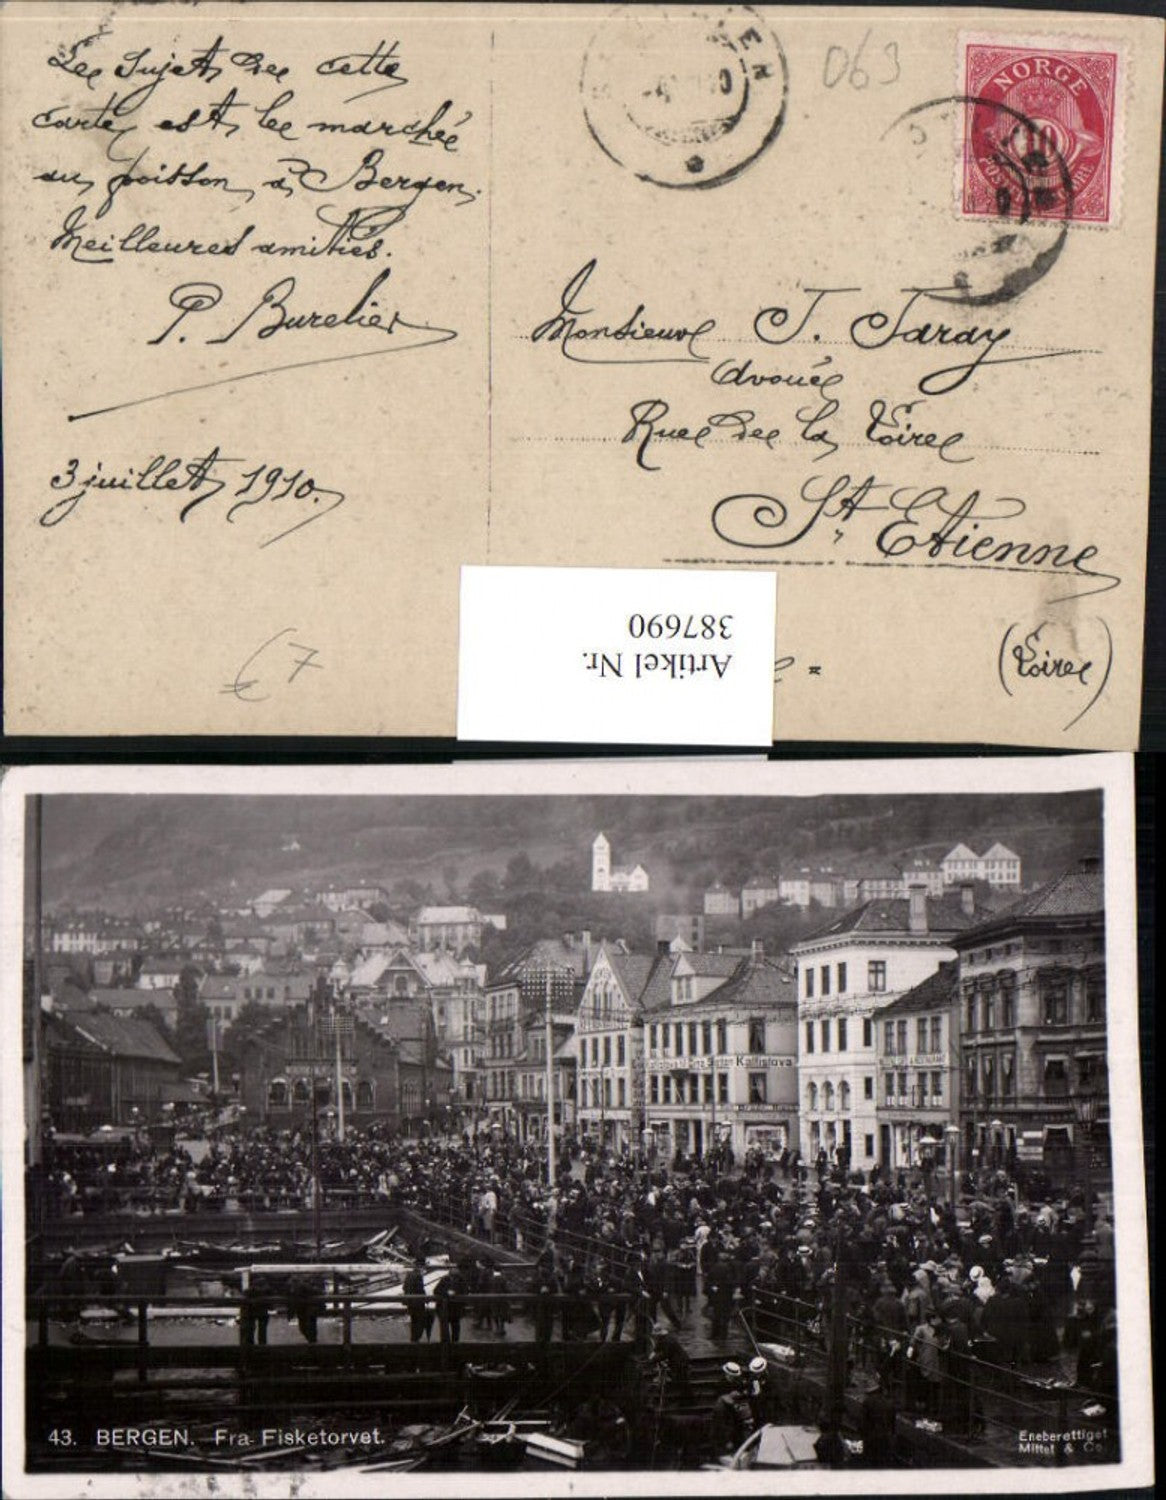 Le Sujet de cette
carte est le marché
au poisson à Bergen.
Meilleures amitiés.
P. Burelier
3 juillet 1910.
063
NORGE
10
Monsieur J. Jaray
avoué
Rue de la Loire
St Etienne
(Loire)
€ 7
Artikel Nr.
387690
Kaffistova
43. BERGEN. Fra Fisketorvet.
Eneberettiget
Mittet & Co.